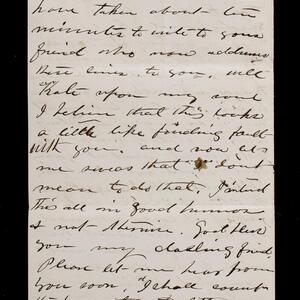 have taken about ten
minutes to write to your
friend who now address
these lines to you. well
Kate upon my soul
I believe that this looks
a little like finding fault
with you. and now let
me swear that I don't
mean to do that, I intend
this all in good humor
& not otherwise. God bless
you my darling friend.
Please let me hear from
you soon, I shall count